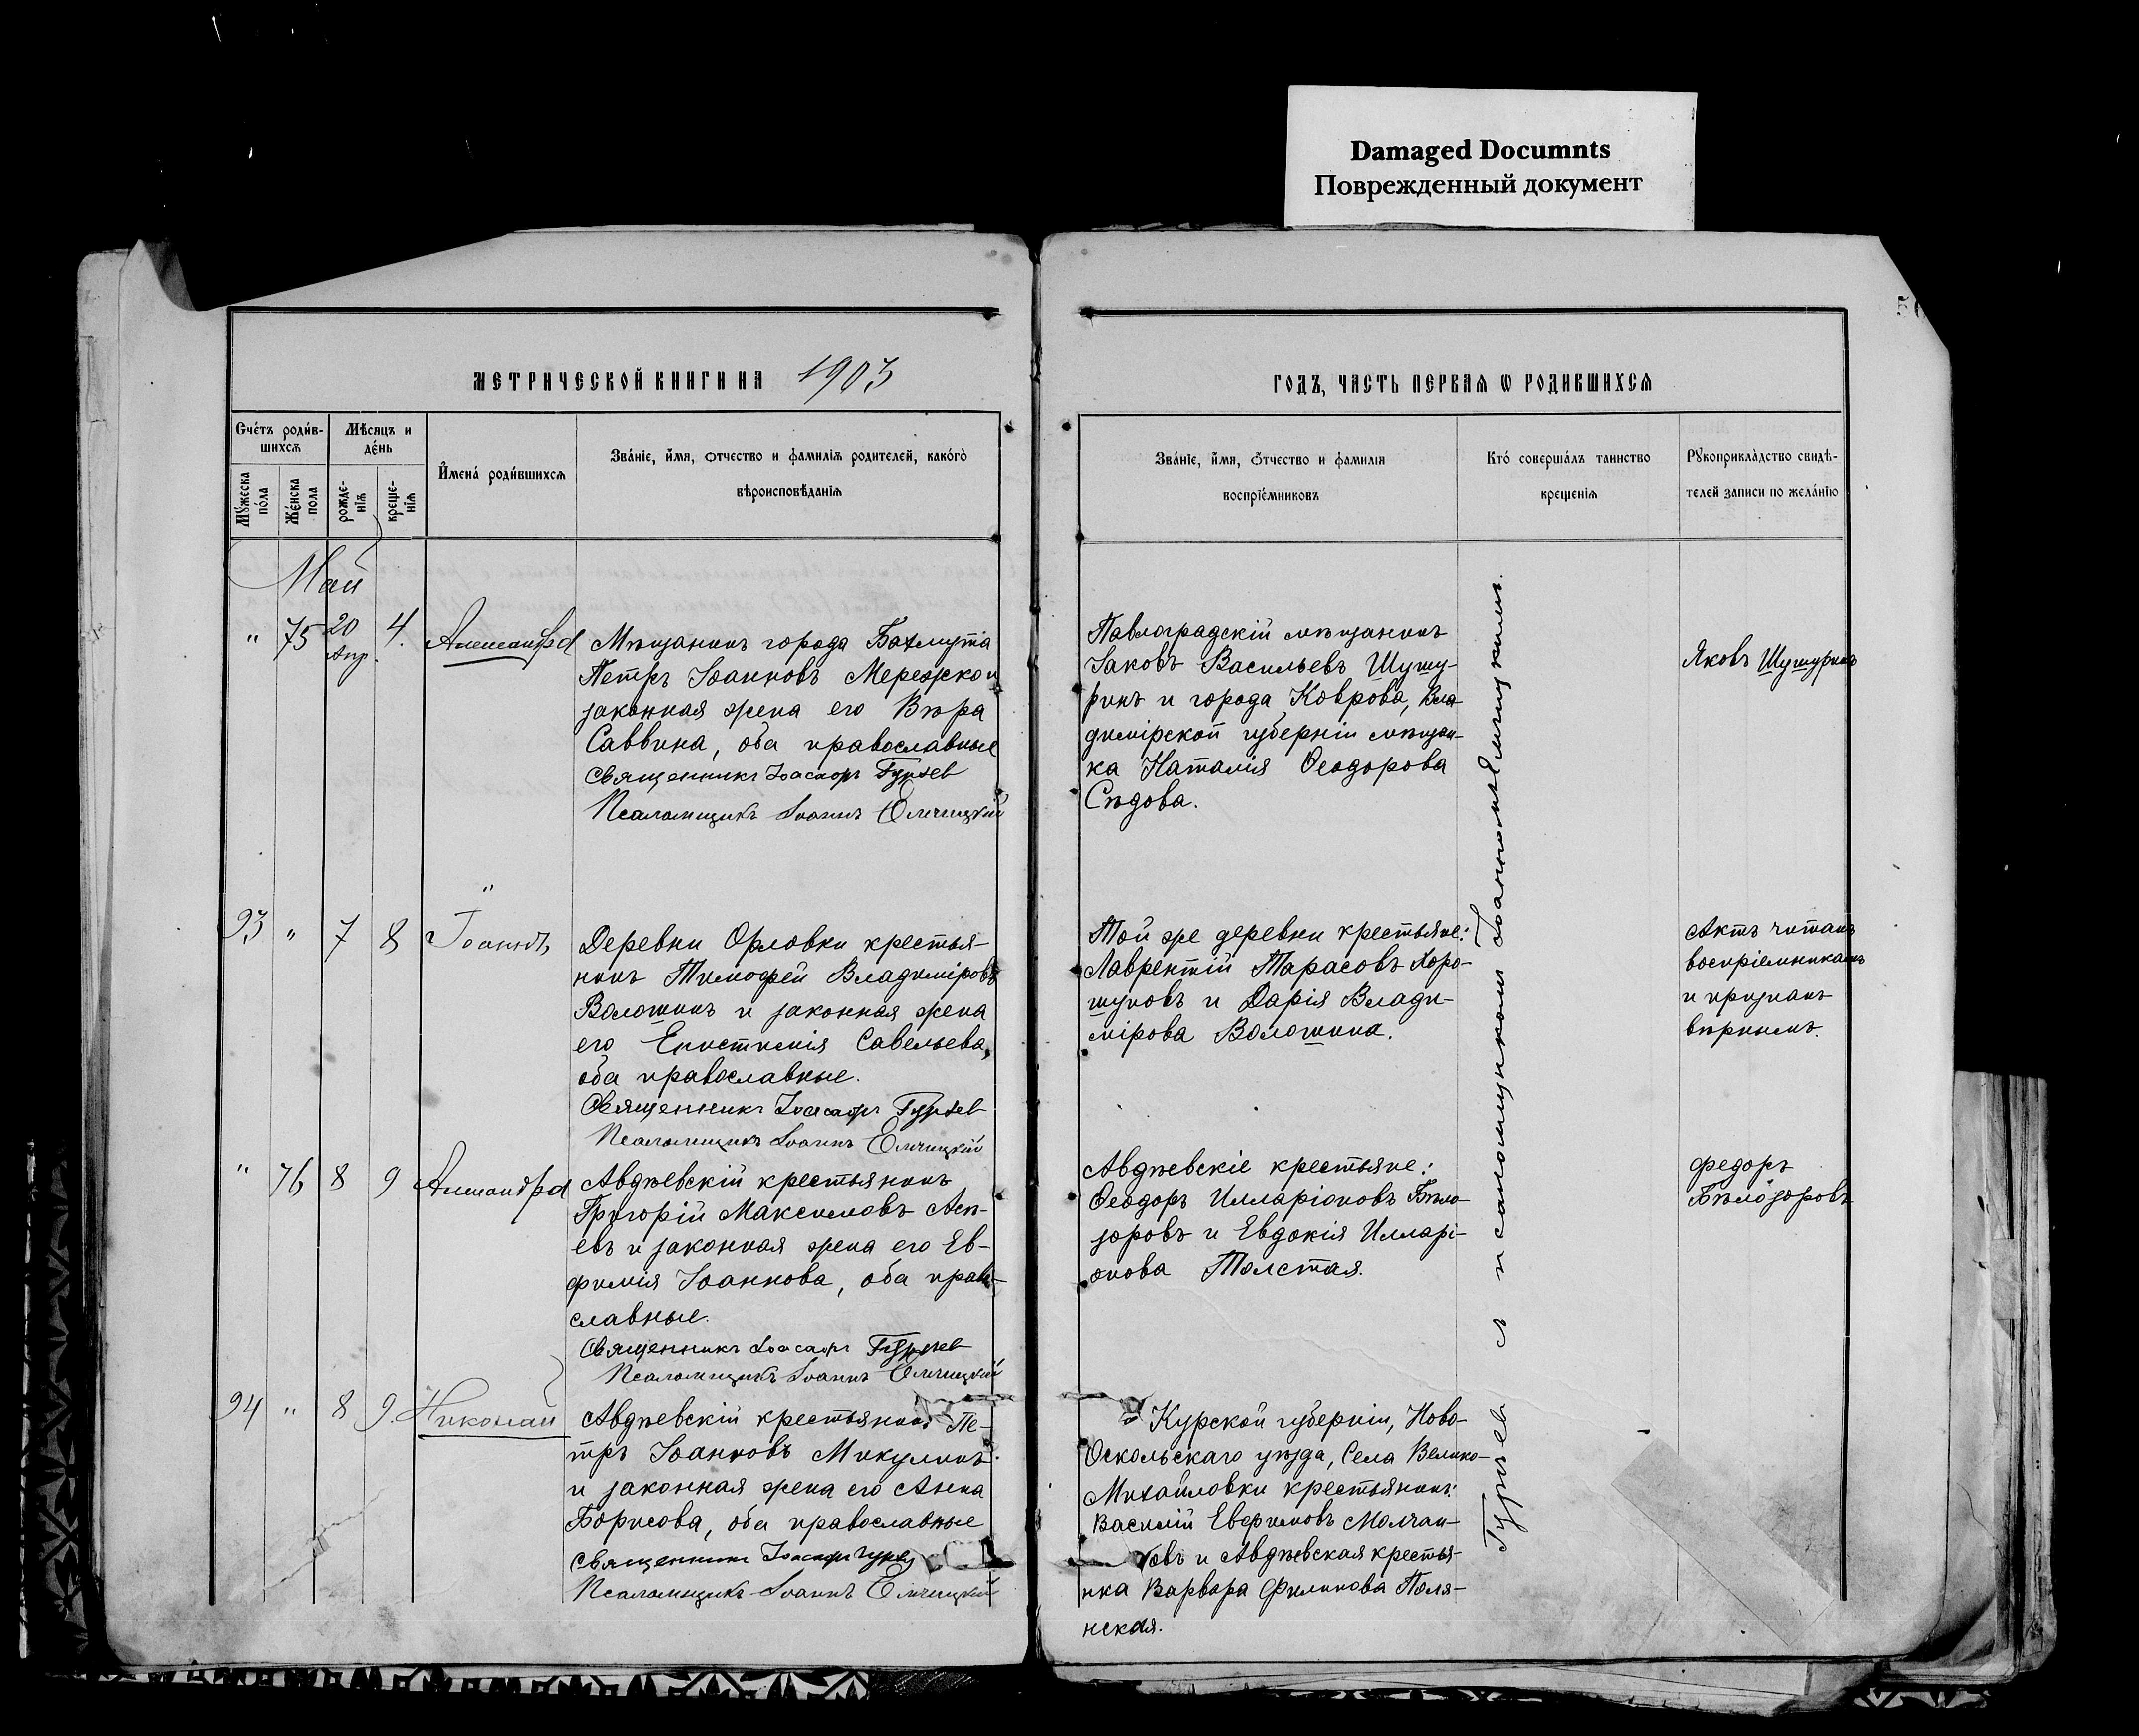 Damaged Documnts
Поврежденный документ
МЕТРИЧЕСКОЙ КНИГИ НА 1903
ГОДЪ, ЧАСТЬ ПЕРВАѦ Ѡ РОДИВШИХСѦ
Счéтъ роди́в-
шихсѧ
Мѣ́сяцъ и
де́нь
Мꙋ́жеска
по́ла
Же́нска
пола
рожде-
нїѧ
креще-
нїѧ
И҆мена̀ роди́вшихсѧ
Зва́нїе, и҆́мя, ѻтчество и фамилїѧ родителей, како́гѡ
вѣроисповѣ́данїѧ
Зва́нїе, и҆́мя, ѻ҆́тчество и фамилїя
воспрїе́мниковъ
Кто̀ соверша́лъ таинство
крещенїѧ
Рꙋкоприкла́дство свидѣ́-
телей записи по жела́нїю
Май
" 75 20 Апр. 4. Александра
Мѣщанинъ города Бахмута
Петръ Іоанновъ Мережко и
законная жена его Вѣра
Саввина, оба православные
Священникъ Іоасафъ Гурьев
Псаломщикъ Іоаннъ Ѐльчицкій
Павлоградскій мѣщанинъ
Іаковъ Васильевъ Шушу-
ринъ и города Коврова, Вла-
димірской губерніи мѣщан-
ка Наталія Ѳеодорова
Сѣдова.
Яковъ Шушуринъ
93 " 7 8 Іоаннъ
Деревни Орловки крестья-
нинъ Тимофей Владиміровъ
Волошинъ и законная жена
его Епистимія Савельева,
оба православные.
Священникъ Іоасафъ Гурьев
Псаломщикъ Іоаннъ Ельчицкій
Той же деревни крестьяне:
Лаврентій Тарасовъ Хоро-
шуновъ и Дарія Влади-
мірова Волошина.
Актъ читанъ
воспріемникамъ
и признанъ
вѣрнымъ.
" 76 8 9 Александра
Авдѣевскій крестьянинъ
Григорій Максимовъ Асѣ-
евъ и законная жена его Ев-
фимія Іоаннова, оба право-
славные.
Священникъ Іоасафъ Гурьев
Псаломщикъ Іоаннъ Ельчицкій
Авдѣевскіе крестьяне:
Ѳеодоръ Илларіоновъ Бѣло-
зоровъ и Евдокія Иллarі-
онова Толстая.
Федоръ
Бѣлозоровъ
94 " 8 9 Николай
Авдѣевскій крестьянинъ Пе-
тръ Іоанновъ Микулинъ
и законная жена его Анна
Борисова, оба православные
Священникъ Іоасафъ Гурьев
Псаломщикъ Іоаннъ Ельчицкій
Курской губерніи, Ново-
Оскольскаго уѣзда, Села Велико-
Михайловки крестьянинъ:
Василій Евфимовъ Молчан-
овъ и Авдѣевская крестья-
нка Варвара Филипова Поля-
нская.
Гурьев съ псаломщикомъ Іоанномъ Ельчицкимъ.